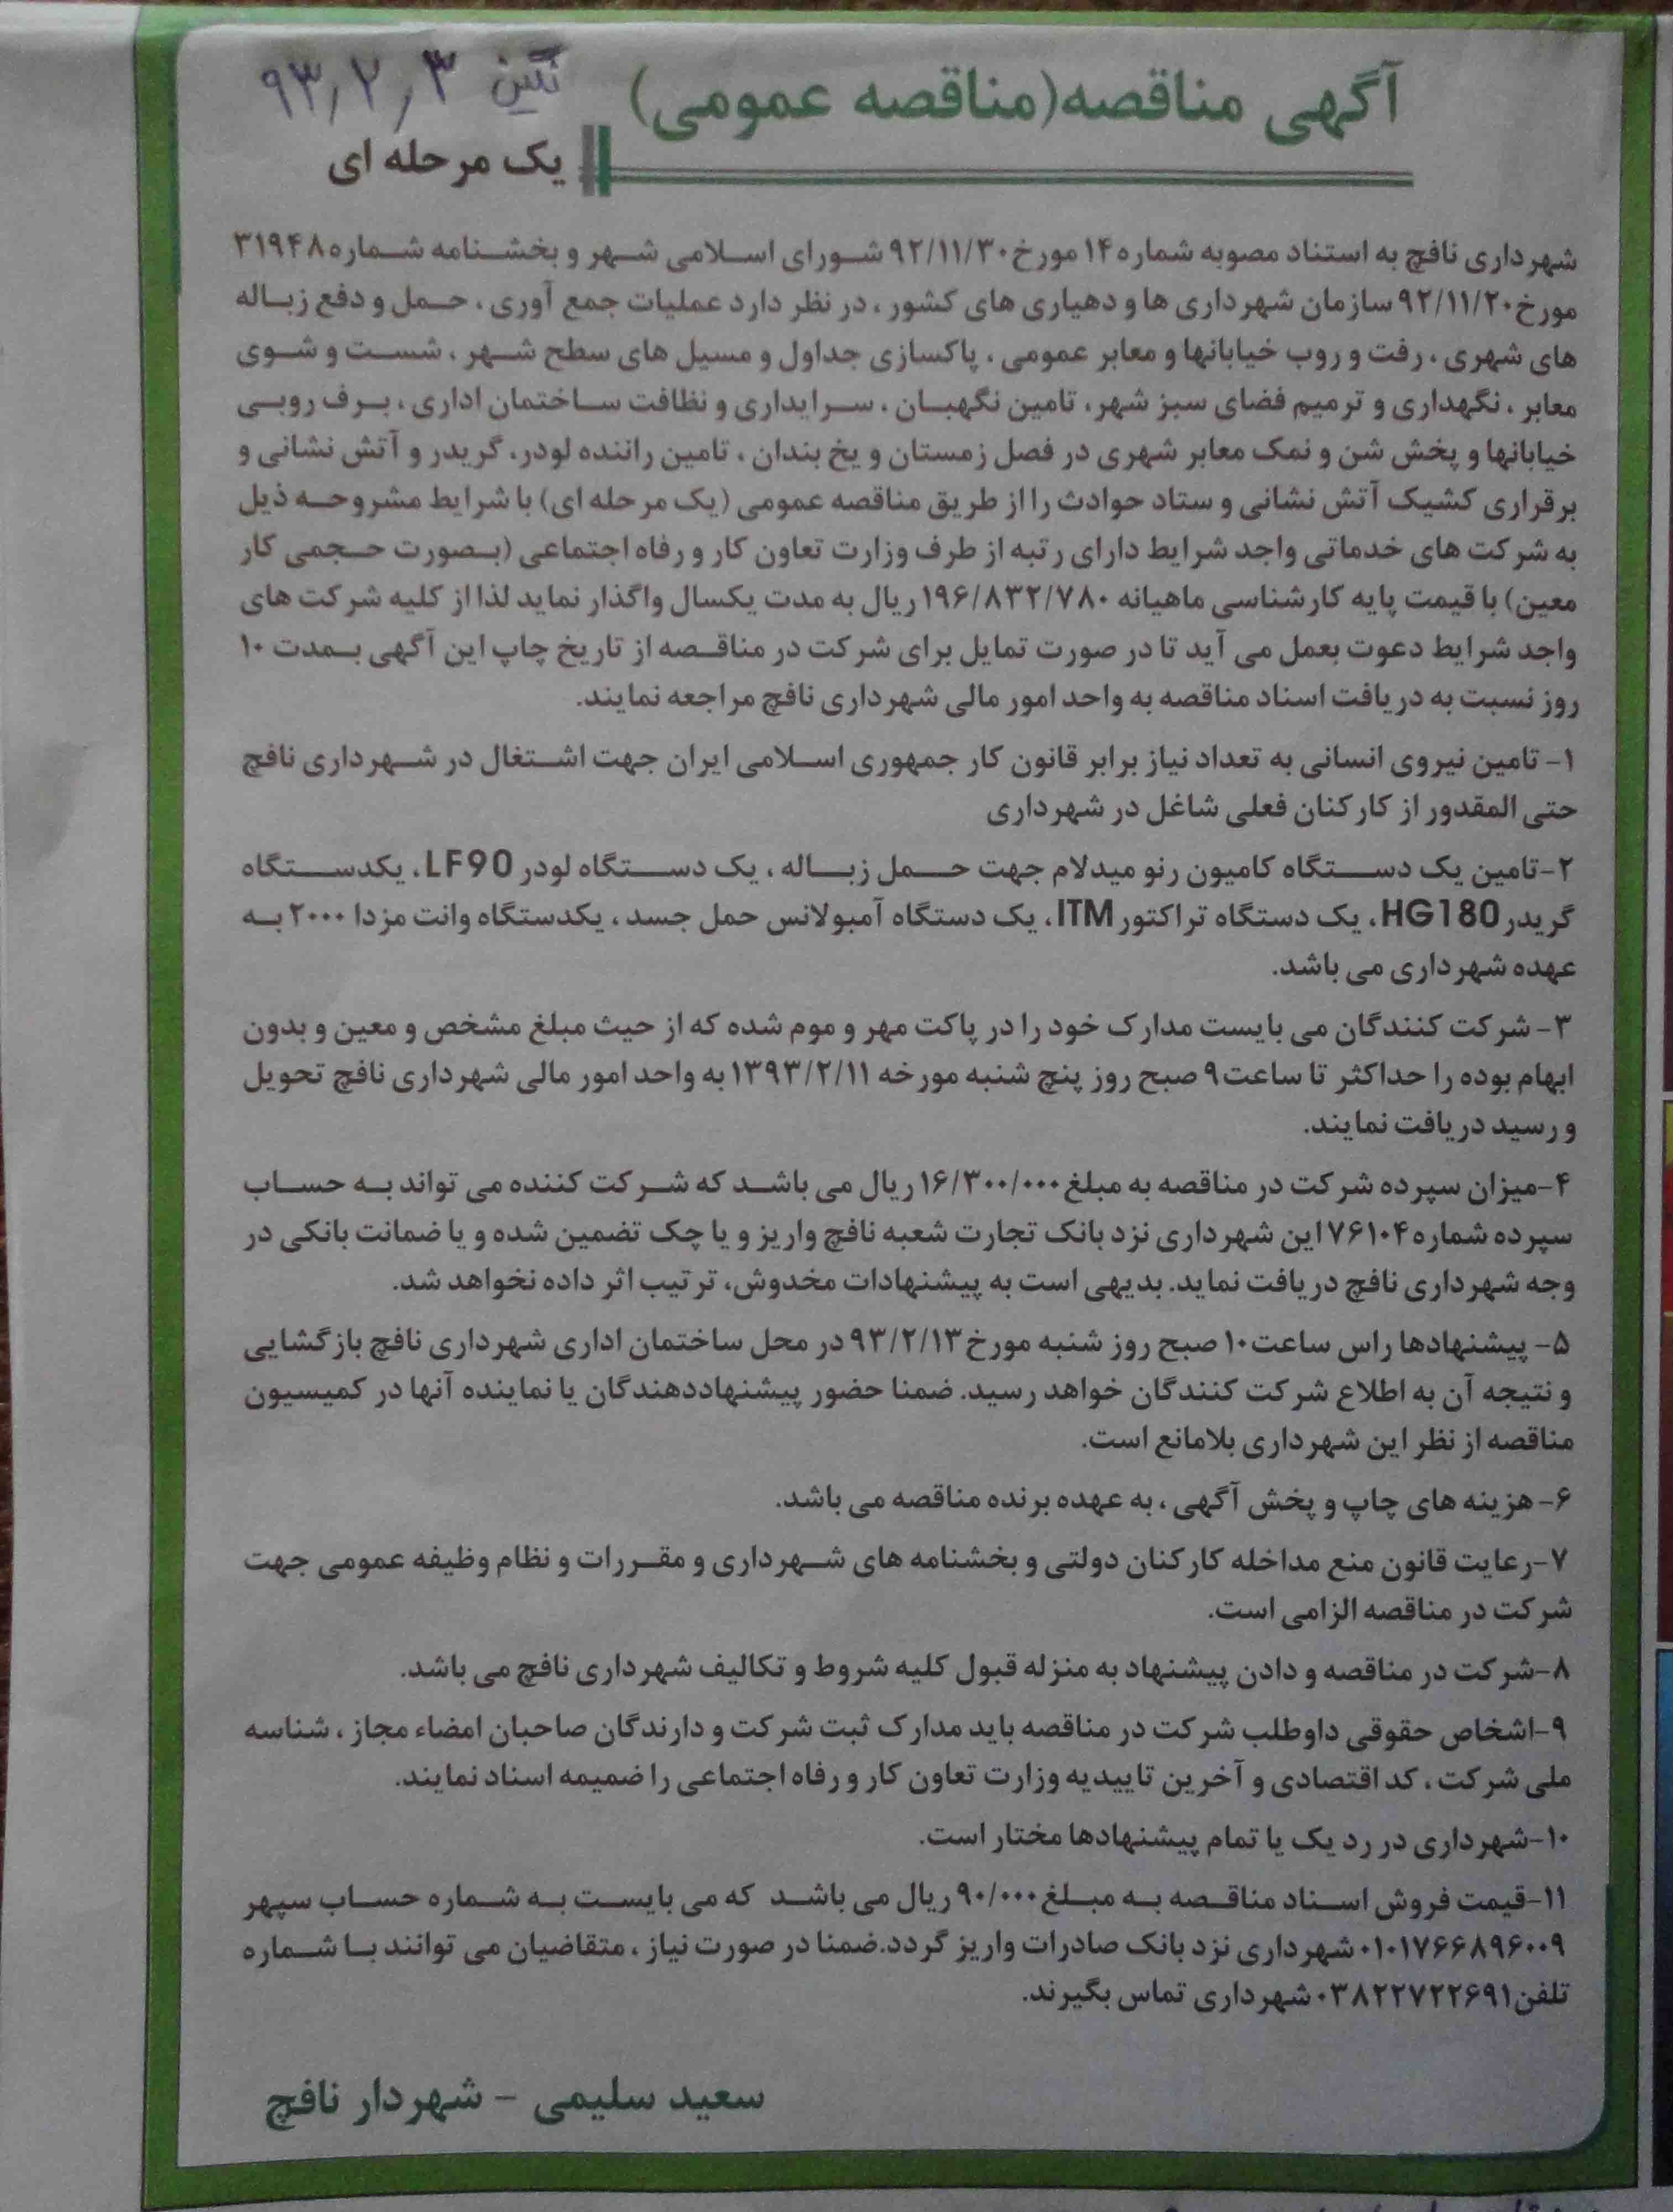 آگهی مناقصه(مناقصه عمومی)
نگین ۹۳٫۲٫۳
یک مرحله ای
شهرداری نافچ به استناد مصوبه شماره۱۴مورخ۹۲/۱۱/۳۰شورای اسلامی شهر و بخشنامه شماره۳۱۹۴۸
مورخ۹۲/۱۱/۲۰سازمان شهرداری ها و دهیاری های کشور ، در نظر دارد عملیات جمع آوری ، حمل و دفع زباله
های شهری ، رفت و روب خیابانها و معابر عمومی ، پاکسازی جداول و مسیل های سطح شهر ، شست و شوی
معابر ، نگهداری و ترمیم فضای سبز شهر، تامین نگهبان ، سرایداری و نظافت ساختمان اداری ، برف روبی
خیابانها و پخش شن و نمک معابر شهری در فصل زمستان و یخ بندان ، تامین راننده لودر، گریدر و آتش نشانی و
برقراری کشیک آتش نشانی و ستاد حوادث را از طریق مناقصه عمومی (یک مرحله ای) با شرایط مشروحه ذیل
به شرکت های خدماتی واجد شرایط دارای رتبه از طرف وزارت تعاون کار و رفاه اجتماعی (بصورت حجمی کار
معین) با قیمت پایه کارشناسی ماهیانه ۱۹۶/۸۳۲/۷۸۰ریال به مدت یکسال واگذار نماید لذا از کلیه شرکت های
واجد شرایط دعوت بعمل می آید تا در صورت تمایل برای شرکت در مناقصه از تاریخ چاپ این آگهی بمدت ۱۰
روز نسبت به دریافت اسناد مناقصه به واحد امور مالی شهرداری نافچ مراجعه نمایند.
۱- تامین نیروی انسانی به تعداد نیاز برابر قانون کار جمهوری اسلامی ایران جهت اشتغال در شهرداری نافچ
حتی المقدور از کارکنان فعلی شاغل در شهرداری
۲-تامین یک دستگاه کامیون رنو میدلام جهت حمل زباله ، یک دستگاه لودر LF90، یکدستگاه
گریدر HG180، یک دستگاه تراکتور ITM، یک دستگاه آمبولانس حمل جسد ، یکدستگاه وانت مزدا ۲۰۰۰ به
عهده شهرداری می باشد.
۳- شرکت کنندگان می بایست مدارک خود را در پاکت مهر و موم شده که از حیث مبلغ مشخص و معین و بدون
ابهام بوده را حداکثر تا ساعت۹ صبح روز پنج شنبه مورخه ۱۳۹۳/۲/۱۱به واحد امور مالی شهرداری نافچ تحویل
و رسید دریافت نمایند.
۴-میزان سپرده شرکت در مناقصه به مبلغ ۱۶/۳۰۰/۰۰۰ریال می باشد که شرکت کننده می تواند به حساب
سپرده شماره۷۶۱۰۴این شهرداری نزد بانک تجارت شعبه نافچ واریز و یا چک تضمین شده و یا ضمانت بانکی در
وجه شهرداری نافچ دریافت نماید. بدیهی است به پیشنهادات مخدوش، ترتیب اثر داده نخواهد شد.
۵- پیشنهادها راس ساعت۱۰ صبح روز شنبه مورخ۹۳/۲/۱۳در محل ساختمان اداری شهرداری نافچ بازگشایی
و نتیجه آن به اطلاع شرکت کنندگان خواهد رسید. ضمنا حضور پیشنهاددهندگان یا نماینده آنها در کمیسیون
مناقصه از نظر این شهرداری بلامانع است.
۶- هزینه های چاپ و پخش آگهی ، به عهده برنده مناقصه می باشد.
۷-رعایت قانون منع مداخله کارکنان دولتی و بخشنامه های شهرداری و مقررات و نظام وظیفه عمومی جهت
شرکت در مناقصه الزامی است.
۸-شرکت در مناقصه و دادن پیشنهاد به منزله قبول کلیه شروط و تکالیف شهرداری نافچ می باشد.
۹-اشخاص حقوقی داوطلب شرکت در مناقصه باید مدارک ثبت شرکت و دارندگان صاحبان امضاء مجاز ، شناسه
ملی شرکت ، کد اقتصادی و آخرین تاییدیه وزارت تعاون کار و رفاه اجتماعی را ضمیمه اسناد نمایند.
۱۰-شهرداری در رد یک یا تمام پیشنهادها مختار است.
۱۱-قیمت فروش اسناد مناقصه به مبلغ ۹۰/۰۰۰ریال می باشد که می بایست به شماره حساب سپهر
۰۱۰۱۷۶۶۸۹۶۰۰۹شهرداری نزد بانک صادرات واریز گردد.ضمنا در صورت نیاز ، متقاضیان می توانند با شماره
تلفن۰۳۸۲۲۷۲۲۶۹۱شهرداری تماس بگیرند.
سعید سلیمی - شهردار نافچ